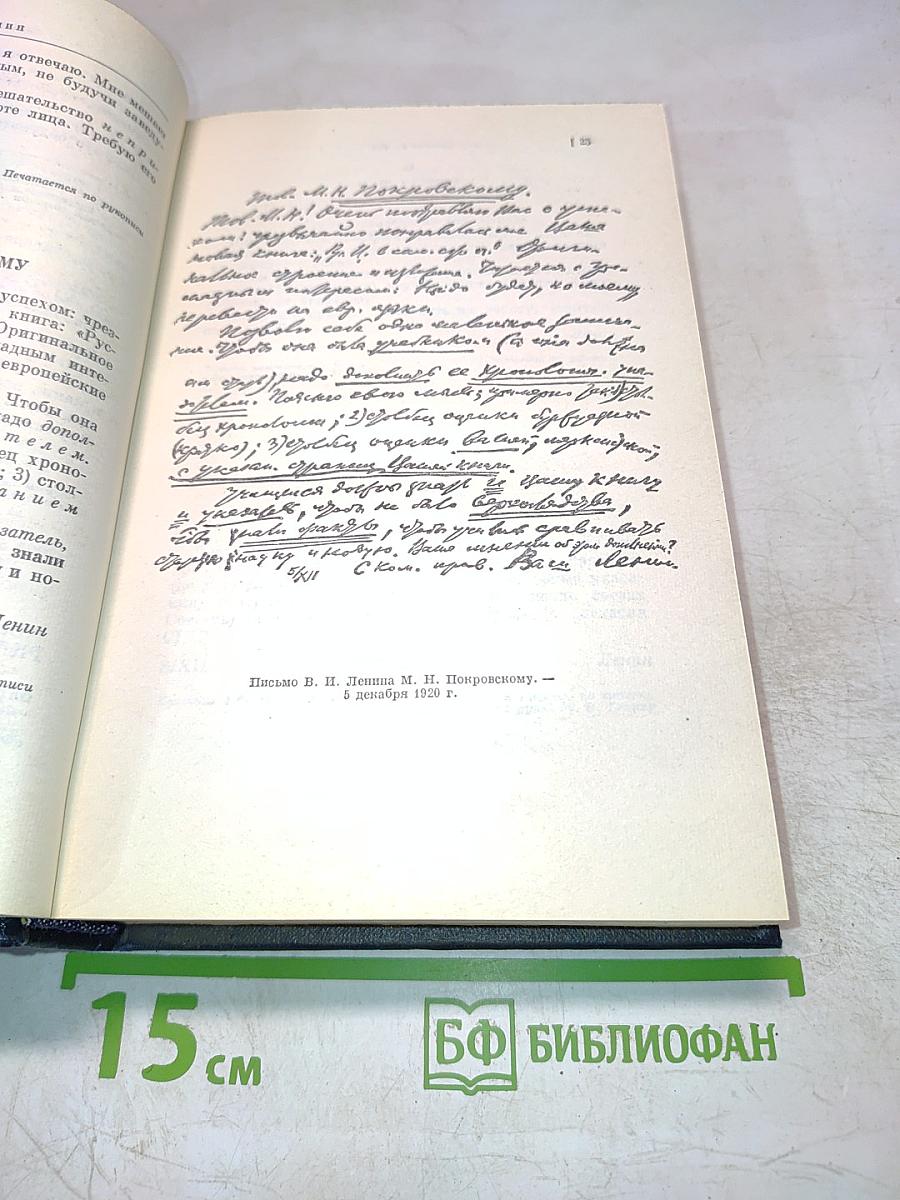 нин
я отвечаю. Мне мешает
ым, не будучи заведу-
ешательство непри-
оте лица. Требую его
Печатается по рукописи
МУ
успехом: чрез-
книга: «Рус-
Оригинальное
адным инте-
европейские
Чтобы она
надо допол-
телем.
ец хроно-
; 3) стол-
анием
азатель,
знали
и но-
Ленин
писи
23
Тов. М. Н. Покровскому.
Тов. М. Н.! Очень поздравляю Вас с успе-
хом: чрезвычайно понравилась мне Ваша
новая книга: „Рус. И. в сам. сж. оч." Ориги-
нальное строение и изложение. Читается с гро-
мадным интересом. Надо будет, по-моему
перевести на евр. языки.
Позволю себе одно маленькое замеча-
ние. Чтобы она была учебником (а она должна
им стать), надо дополнить ее хронологич. ука-
зателем. Поясню свою мысль; примерно так: 1) стол-
бец хронологии; 2) столбец оценки буржуазной
(кратко); 3) столбец оценки Вашей, марксистской;
с указан. страниц Вашей книги.
Учащиеся должны знать и Вашу книгу
и указатель, чтобы не было верхоглядства,
чтобы знали факты, чтобы учились сравнивать
старую науку и новую. Ваше мнение об этом дополнении?
5/XII С ком. прив. Ваш Ленин.
Письмо В. И. Ленина М. Н. Покровскому. —
5 декабря 1920 г.
15 см
БФ БИБЛИОФАН